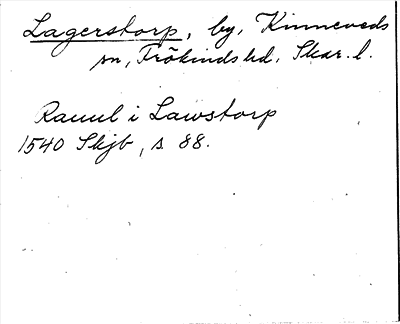 Lagerstorp, by, Kinneveds
sn, Frökinds hd, Skar. l.
Rauul i Lawstorp
1540 Skjb, s 88.